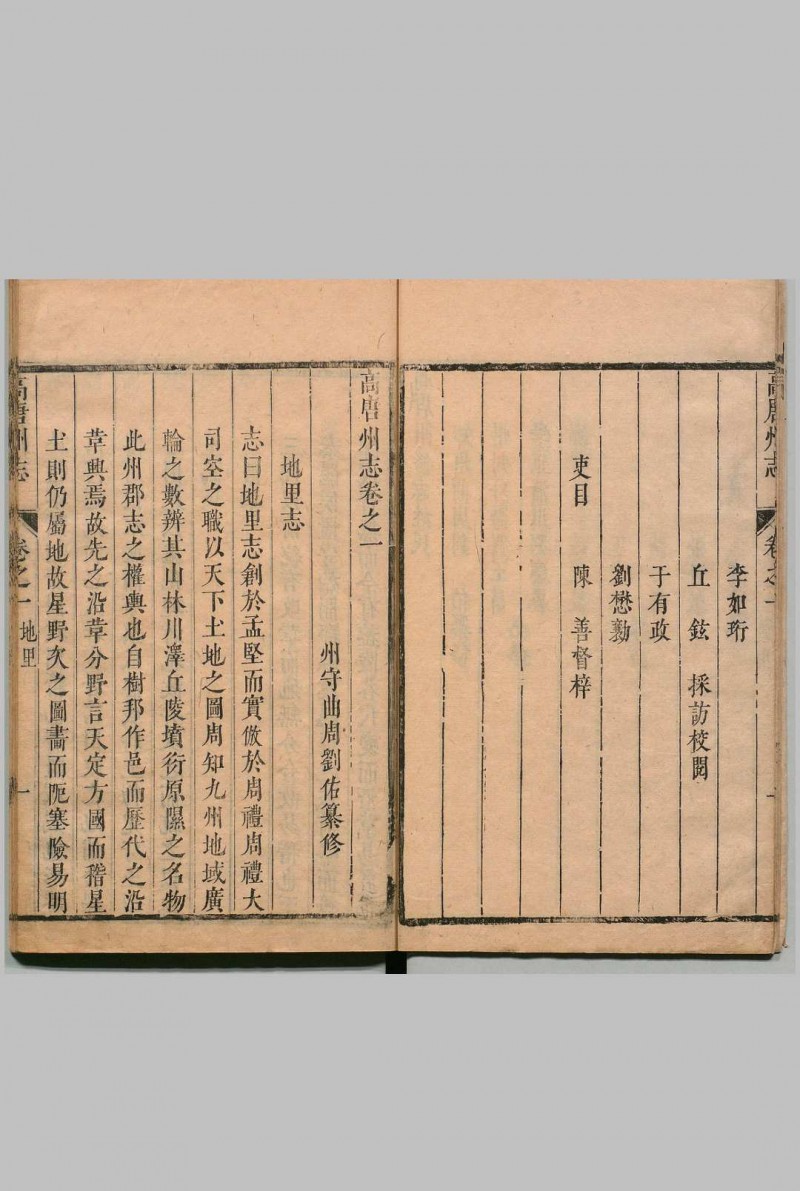 高唐州志
卷之一
一
李如珩
丘鉉 採訪校閱
于有政
劉懋勷
吏目 陳善督梓
高唐州志卷之一
州守曲周劉佑纂修
地里志
志曰地里志創於孟堅而實倣於周禮周禮大
司空之職以天下土地之圖周知九州地域廣
輪之數辨其山林川澤丘陵墳衍原隰之名物
此州郡志之權輿也自樹邦作邑而歷代之沿
革興焉故先之沿革分野言天定方國而稽星
土則仍屬地故星野次之圖畵而阨塞險易明
高唐州志
卷之一
地里
一